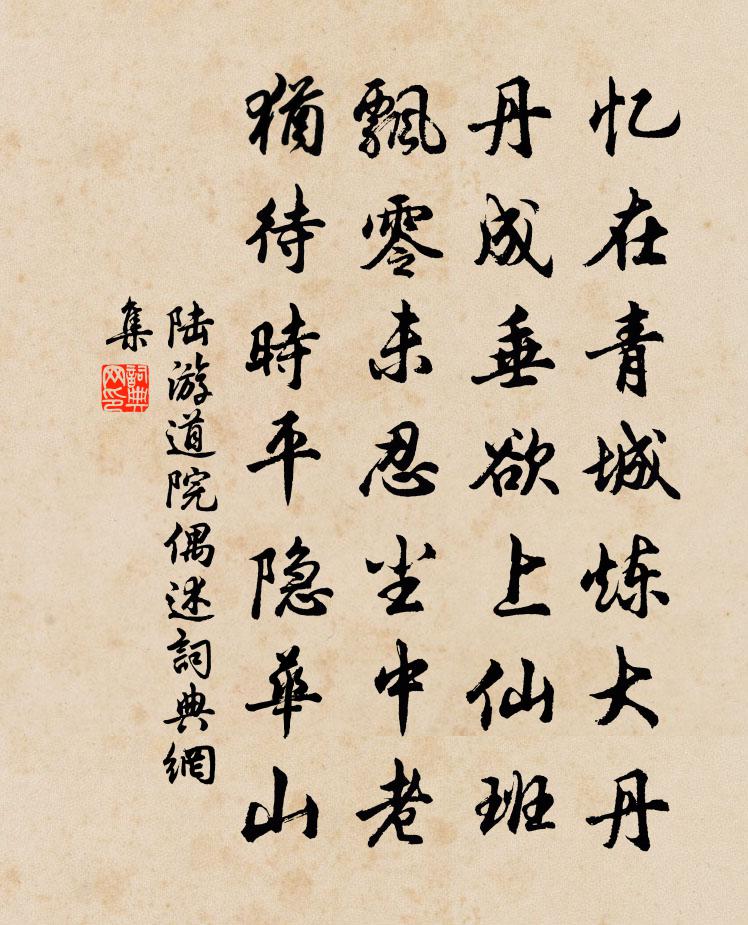 忆在青城炼大丹
丹成垂欲上仙班
飄零未忍尘中老
猶待時平隐華山
陆游道院偶述詞典網
集
詞典
网印